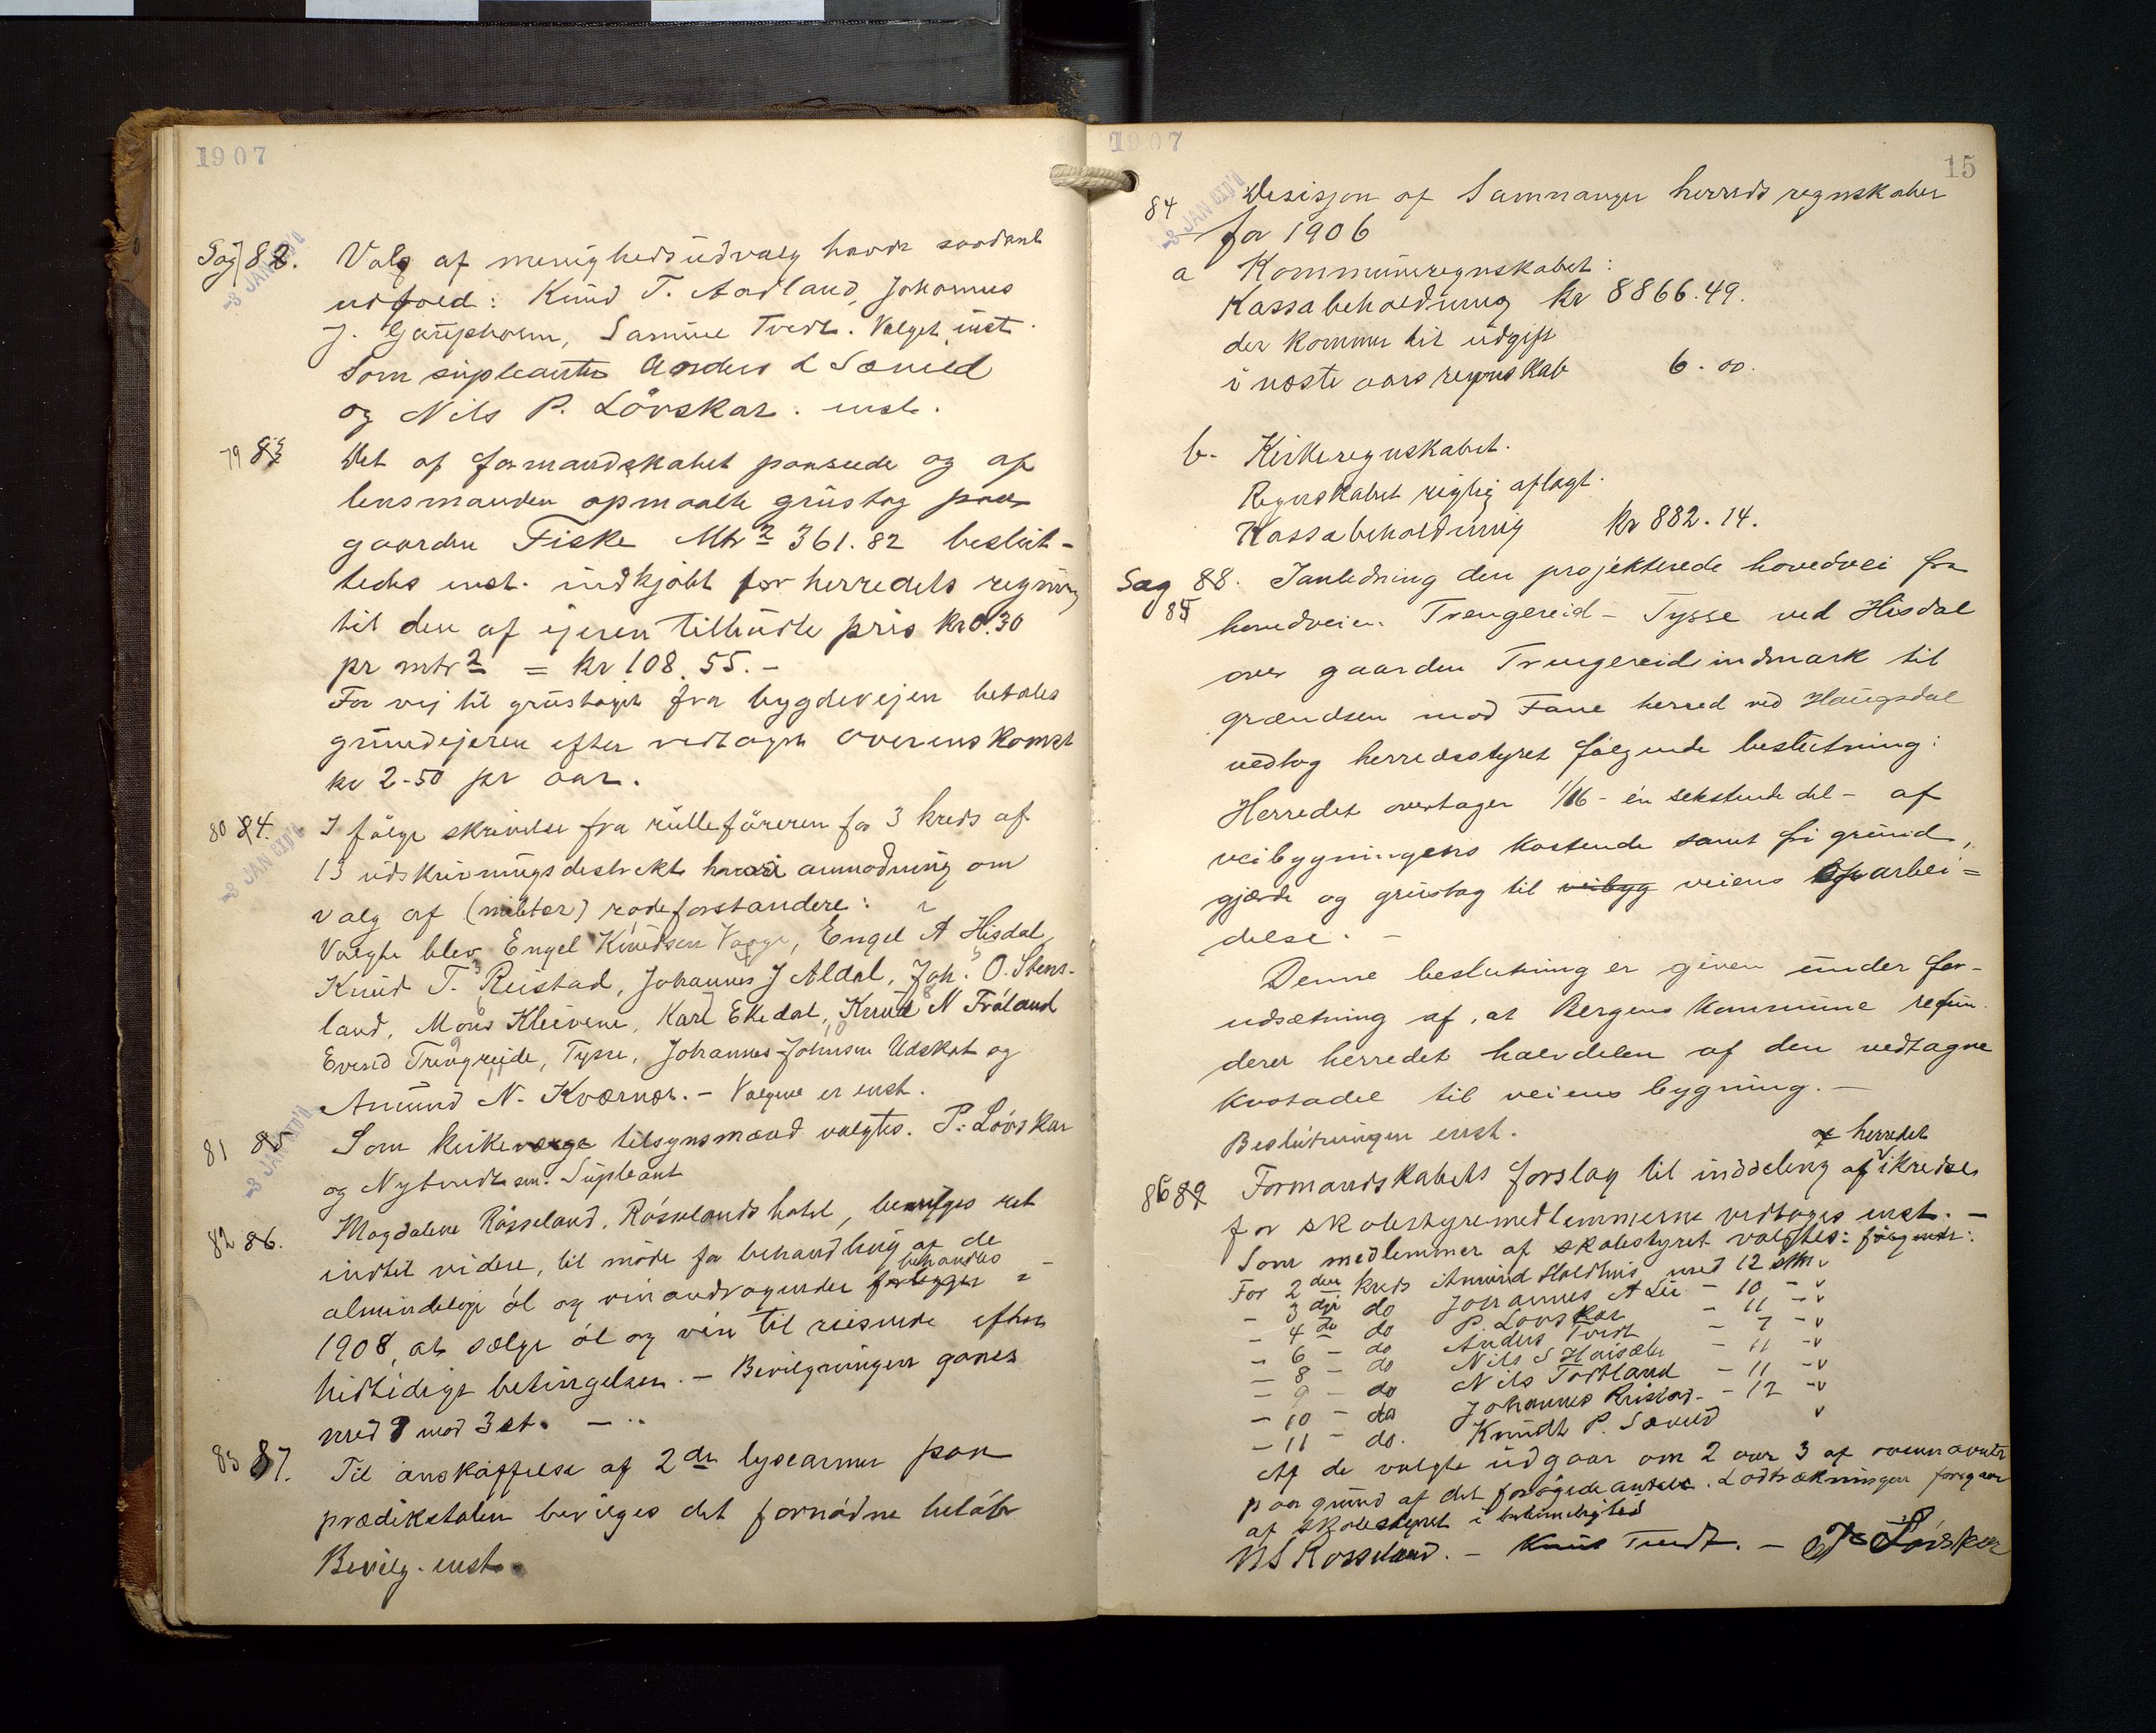 1907
Sag 82. Valg af menighedsudvalg havde saadant
udfald: Knud T. Aadland, Johannes
J. Gaupholm, Samuel Tvedt. Valget enst.
Som supleanter Anders L Sæved
og Nils P. Lövskar. enst.
79 83 Det af formandskabet paaseede og af
lensmanden opmaalte grustag paa
gaarden Fiske Mtr2 361.82 beslut-
tedes enst. indkjöbt for herredets regning
til den af ejeren tilbudte pris kr 0.30
pr mtr2 = kr 108.55.-
For vej til grustaget fra bygdevejen betales
grundejeren efter vedtagen overenskomst
kr 2-50 pr aar.
80 84. I fölge skrivelse fra rulleföreren for 3 kreds af
13 udskrivningsdestrekt anmodning om
valg af (militær) rodeforstandere:
Valgte blev Engel Knudsen Vaage, Engel A Hisdal,
Knud T. Reistad, Johannes J Aldal, Joh. O. Stens-
land, Mons Kleivene, Karl Ekedal, Knud N Fröland
Evind Trengreide, Tysse, Johannes Johnsen Udskot og
Amund N. Kværnæs. - Valgene er enst.
81 85 Som kirkeværge tilsynsmænd valgtes. P. Lövskar
og Nytvedt sen. Supleant
82 86. Magdalene Rösseland, Rösselands hotel, bevilges ret
indtil videre, til möde for behandling af de
almindelige öl og vinandragender behandles i
1908, at sælge öl og vin til reisende efter
hidtidige betingelser. - Bevilgningen gaves
med 9 mod 3 st. -
83 87. Til anskaffelse af 2de lysearmer paa
prædikstolen bevilges det fornödne belöb
Bevilg. enst.
1907
15
84 Desisjon af Samnanger herreds regnskaber
for 1906
a Kommuneregnskabet:
Kassabeholdning kr 8866.49.
der kommer til udgift
i næste aars regnskab 6.00.
b. Kirkeregnskabet.
Regnskabet rigtig aflagt.
Kassabeholdning kr 882.14.
Sag 88. Ianledning den projekterede hovedvei fra
85 hovedveien Trengereid - Tysse ved Hisdal
over gaarden Trengereid indmark til
grændsen mod Fane herred ved Haugsdal
vedtog herredsstyret fölgende beslutning:
Herredet overtager 1/16 - én sekstende del - af
veibygningens kostende samt fri grund,
gjærde og grustag til veibyg veiens oparbei=
delse. -
Denne beslutning er given under for-
udsætning af, at Bergens kommune refun-
derer herredet halvdelen af den vedtagne
kostadel til veiens bygning. -
Beslutningen enst.
86 89 Formandskabets forslag til inddeling af herredet i kredse
for skolestyremedlemmerne vedtoges enst. -
Som medlemmer af skolestyret valgtes: fölgende:
For 2den kreds Amund Holdhus med 12 stm v
- 3dje do Johannes A Lie - 10 - v
- 4de do P. Lövskar - 11 - v
- 6 - do Anders Tvedt - 7 - v
- 8 - do Nils S Haisæle - 11 - v
- 9 - do Nils Tordtland - 11 - v
- 10 - do Johannes Reistad - 12 - v
- 11 - do. Knudt P. Sæved v
Af de valgte udgaar om 2 aar 3 af ovennævnte
paa grund af det forögede antal. Lodtrækningen foregaar
af skolestyret i
N S Rosseland. - Knut Tvedt. - P Lövskar